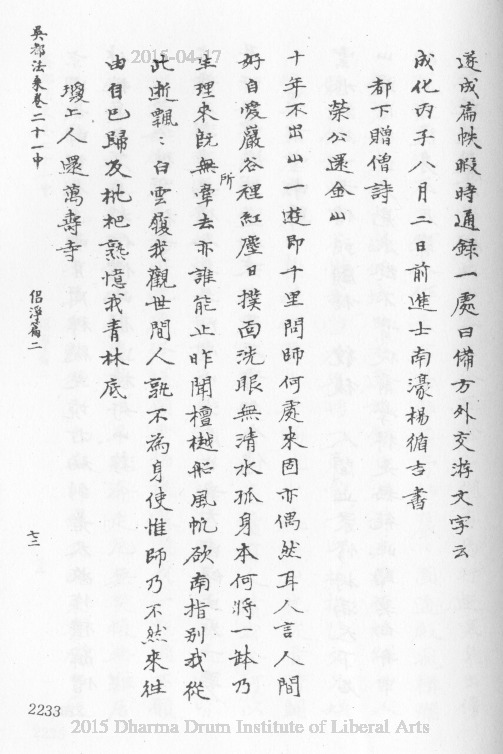 遂成篇帙暇時通錄一處曰備方外交游文字云
成化丙子八月二日前進士南濠楊循吉書
都下贈僧詩
榮公還金山
十年不出山一遊即千里問師何處來固亦偶然耳人言人間
好自愛巖谷裡紅塵日撲面洗眼無清水孤身本何將一缽乃
生理來既無牽去亦誰能止昨聞檀樾船風帆欲南指別我從
所
此逝飄〻白雲履我觀世間人孰不為身使惟師乃不然來往
由自已歸及枇杷熟憶我青林底
瓊上人還萬壽寺
吳都法乘卷二十一中
侶淨篇二
七三
2233
2015-04-17
2015 Dharma Drum Institute of Liberal Arts